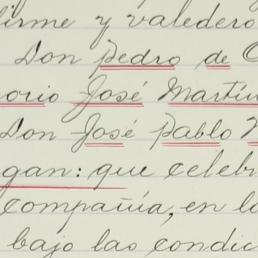 firme y valedero
Don Pedro de
orio José Martín
Don José Pablo
gan: que celeb
compañía, en l
bajo las condic